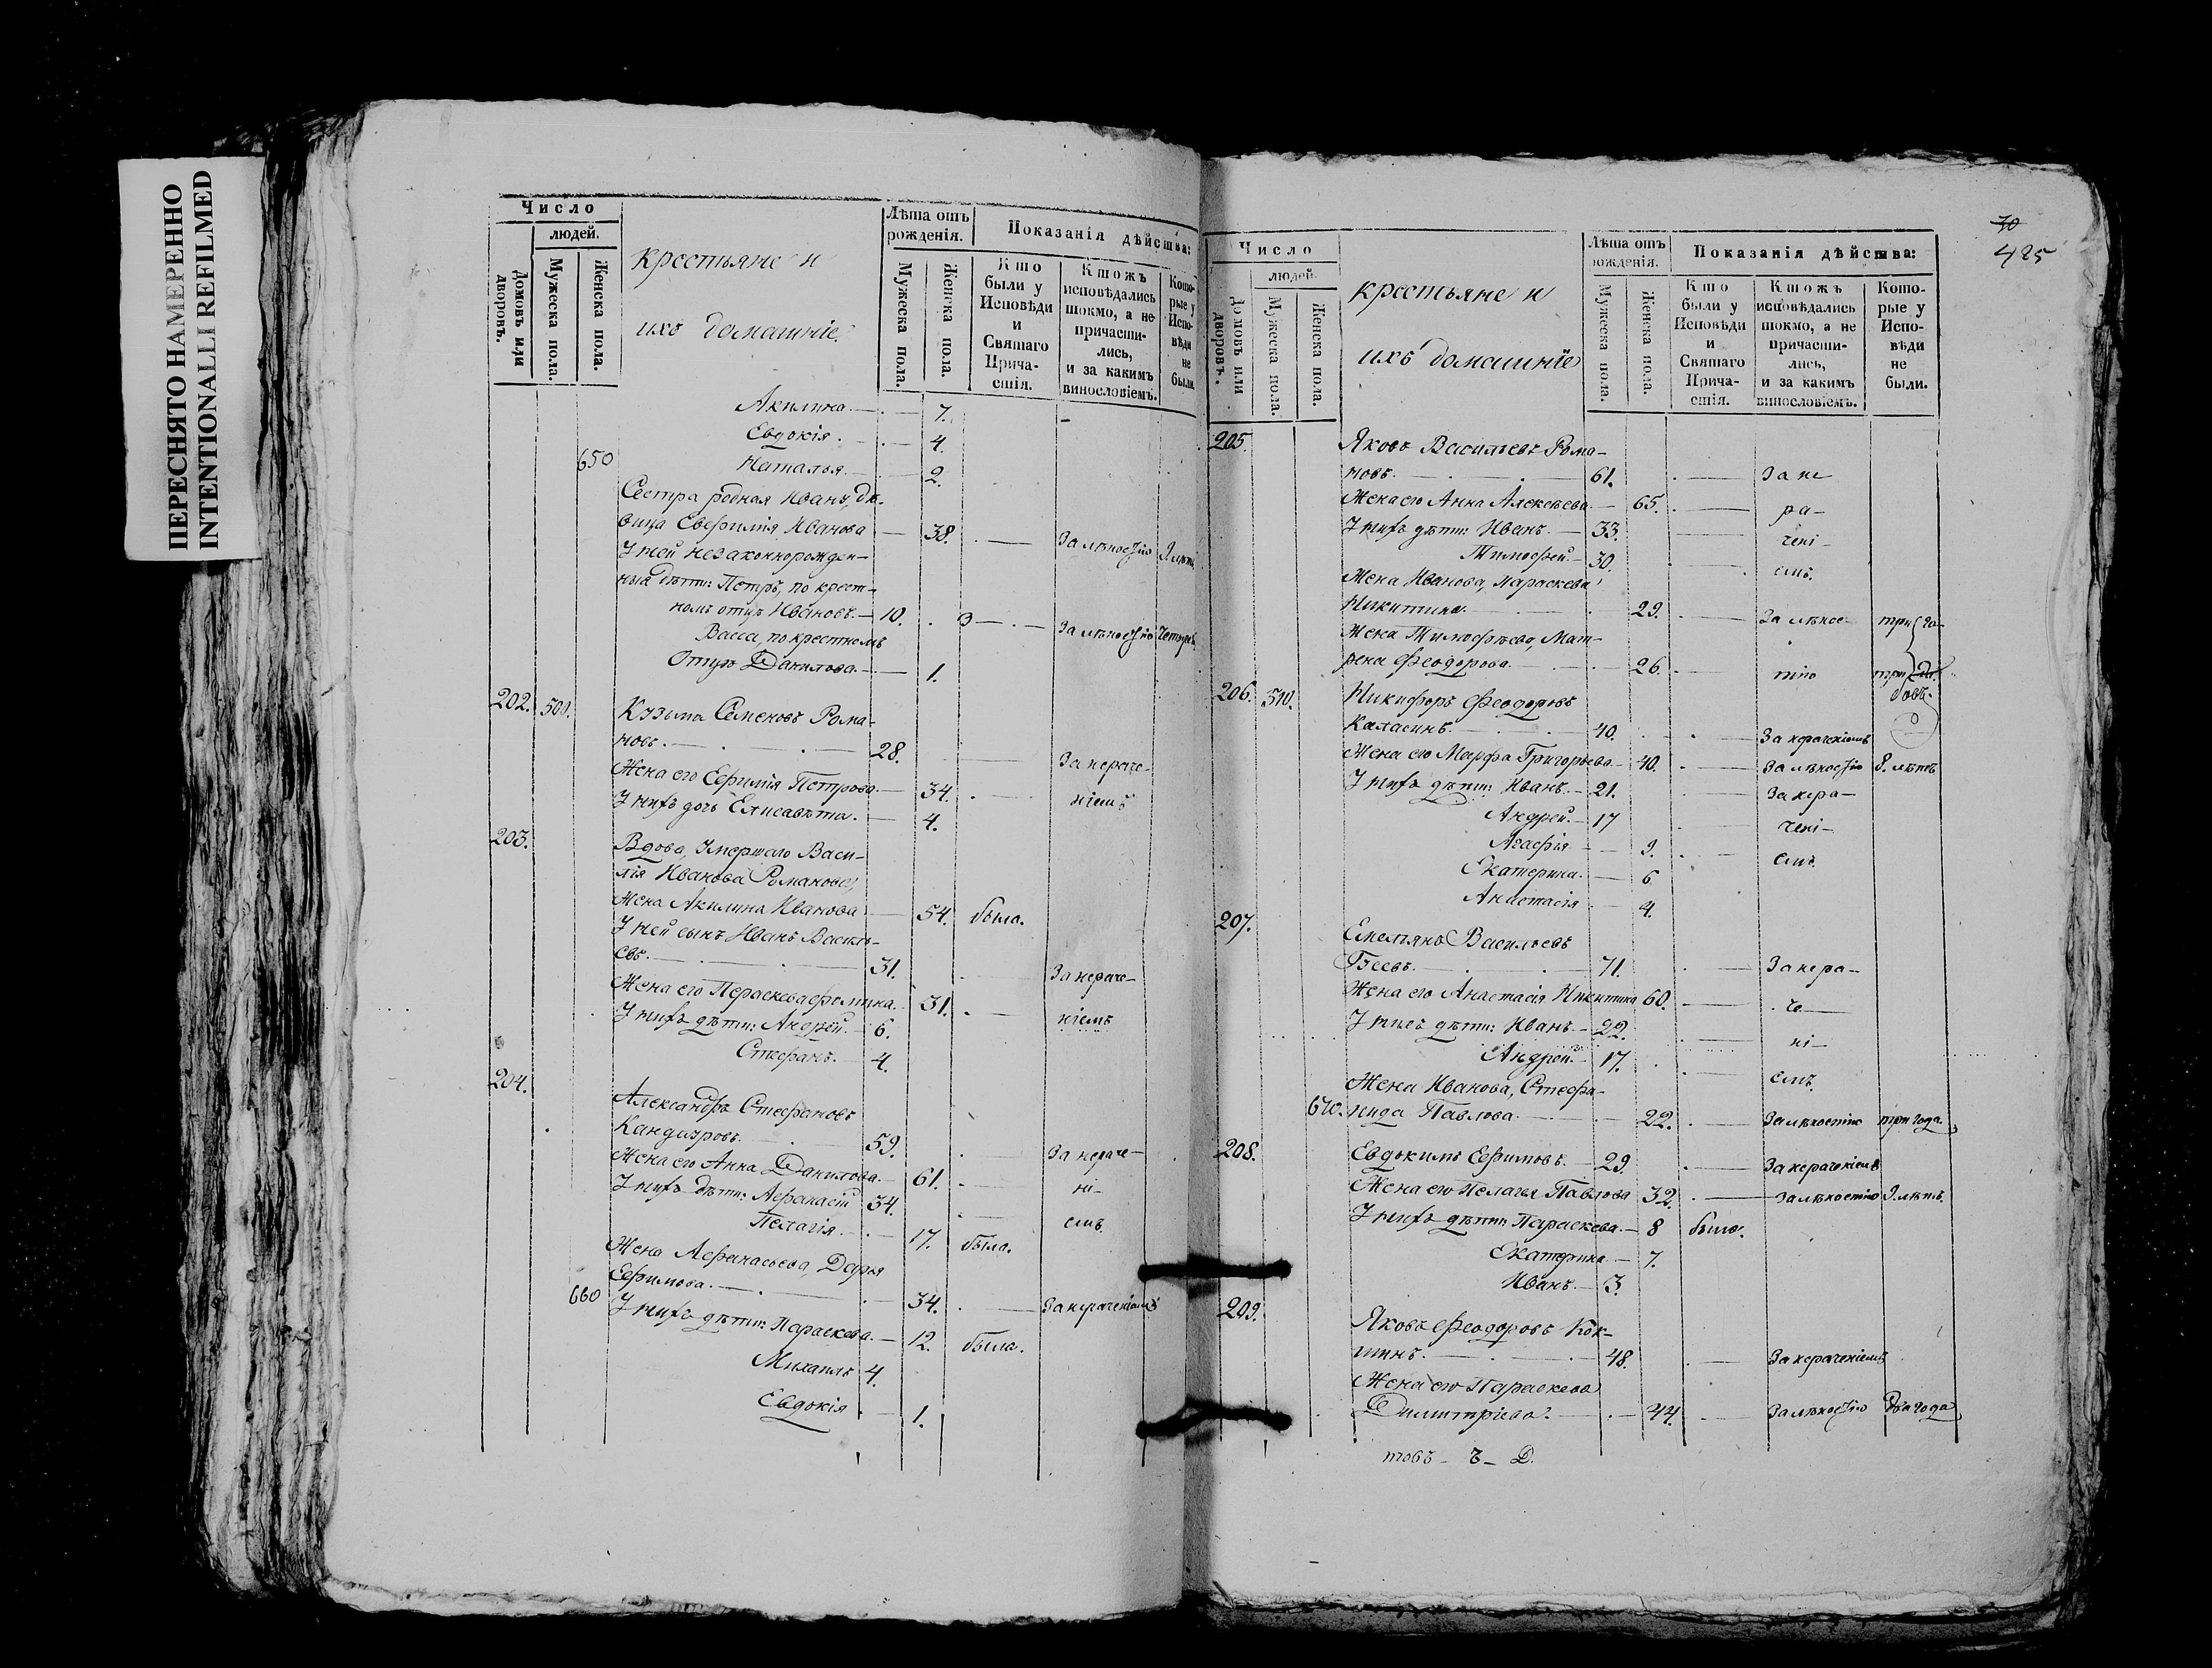 ПЕРЕСНЯТО НАМЕРЕННО
INTENTIONALLI REFILMED
Число
людей.
Домовъ или дворовъ.
Мужеска пола.
Женска пола.
крестьяне и
ихъ домашніе.
Лѣта отъ рожденія.
Мужеска пола.
Женска пола.
Показанія дѣйства:
Кто были у Исповѣди и Святаго Прича-стія.
Ктожъ исповѣдались токмо, а не причасти-лись, и за какимъ винословіемъ.
Кото-рые у Испо-вѣди не были.
Акилина. 7.
Евдокія. 4.
650 Наталья. 2.
Сестра родная Ивану, дѣ-
вица Евфимія Иванова 38. За лѣностію 9. лѣтъ
У ней незаконнорожден-
ныя дѣти: Петръ, по крест-
номъ отцѣ Ивановъ. 10.
Васса, по крестномъ За лѣностію четыре
Отцѣ Данилова. 1.
202. 500. Кузьма Семеновъ Рома-
новъ. 28. За нераче-
Жена его Ефимія Петрова 34. ніемъ
У нихъ дочь Елисавѣта. 4.
203. Вдова, Умершаго Васи-
лія Иванова Романова,
Жена Акилина Иванова 54. была.
У ней сынъ Иванъ Василь-
евъ. 31. За нераче-
Жена его Параскева Фомина. 31. ніемъ
У нихъ дѣти: Андрей. 6.
Стефанъ. 4.
204. Александръ Стефановъ
Кандауровъ. 59. За нераче-
Жена его Анна Данилова. 61. ні-
У нихъ дѣти: Афанасій 34. емъ
Пелагія. 17. была.
Жена Афанасьева, Дарья
Ефимова. 34. За нераченіемъ
660 У нихъ дѣти: Параскева. 12. была.
Михаилъ 4.
Евдокія 1.
70
485
Число
людей.
Домовъ или дворовъ.
Мужеска пола.
Женска пола.
крестьяне и
ихъ домашніе
Лѣта отъ рожденія.
Мужеска пола.
Женска пола.
Показанія дѣйства:
Кто были у Исповѣди и Святаго Прича-стія.
Ктожъ исповѣдались токмо, а не причасти-лись, и за какимъ винословіемъ.
Кото-рые у Испо-вѣди не были.
205. Яковъ Васильевъ Рома-
новъ. 61. За не
Жена его Анна Алексѣева. 65. ра-
У нихъ дѣти: Иванъ. 33. чені-
Тимофей. 30. емъ.
Жена Иванова, Параскева
Никитина. 29. За лѣнос- три го-
Жена Тимофѣева, Мат-
рена Феодорова. 26. тію три довъ.
206. 510. Никифоръ Феодоровъ
Каласинъ. 40. За нераченіемъ
Жена его Марфа Григорьева. 40. За лѣностію 8. лѣтъ
У нихъ дѣти: Иванъ. 21. За нера-
Андрей. 17 чені-
Агафія 9. емъ.
Екатерина. 6
Анастасія 4.
207. Емельянъ Васильевъ
Гѣевъ. 71. За нера-
Жена его Анастасія Никитина 60. че
У нихъ дѣти: Иванъ. 22. ні-
Андрей. 17. емъ.
Жена Иванова, Стефа-
670. нида Павлова. 22. За лѣностію три года.
208. Евдокимъ Ефимовъ. 29 За нераченіемъ
Жена его Пелагея Павлова 32. За лѣностію 9. лѣтъ.
У нихъ дѣти: Параскева. 8 была.
Екатерина 7.
Иванъ. 3.
209. Яковъ Феодоровъ Кок-
шинъ. 48. За нераченіемъ
Жена его Параскева
Димитріева. 44. За лѣностію два года